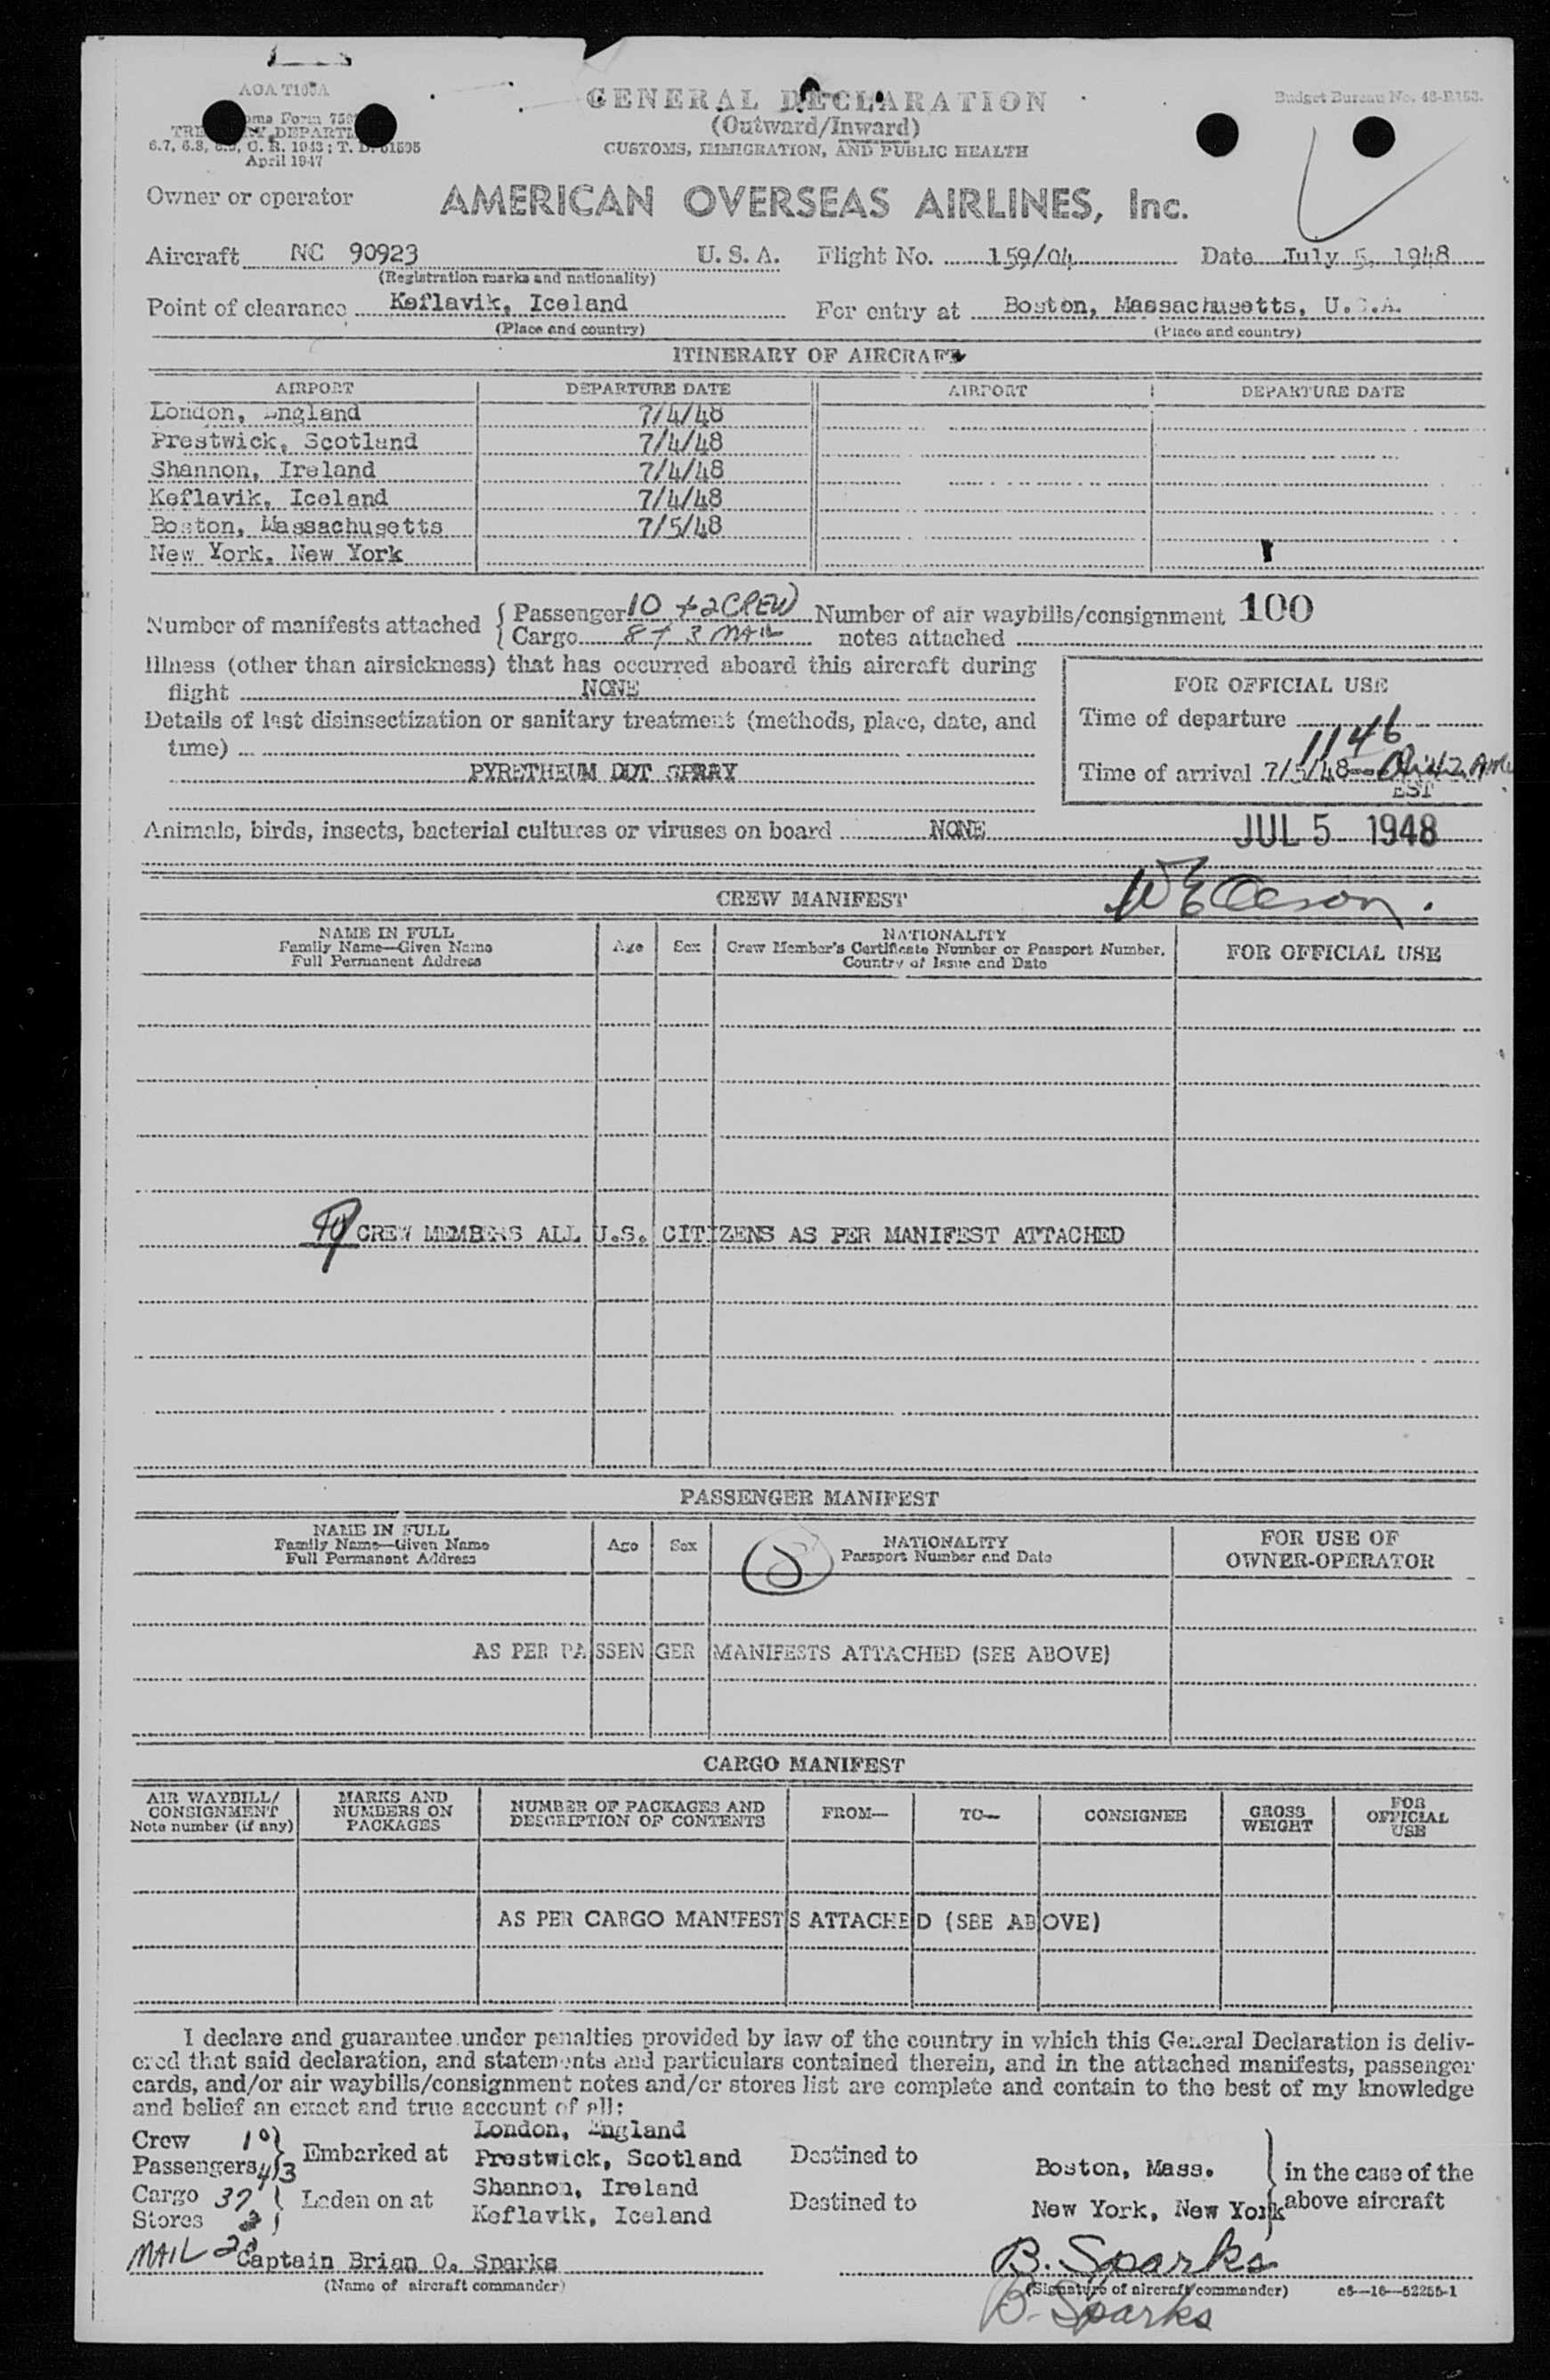 AOA T100A
GENERAL DECLARATION
Budget Bureau No. 48-R153.
(Outward/Inward)
CUSTOMS, IMMIGRATION, AND PUBLIC HEALTH
Form
6.7, 6.8, C. R. 1943; T. D. 51595
April 1947
Owner or operator AMERICAN OVERSEAS AIRLINES, Inc.
Aircraft NC 90923 U. S. A. Flight No. 159/04 Date July 5, 1948
(Registration marks and nationality)
Point of clearance Keflavik, Iceland For entry at Boston, Massachusetts, U.S.A.
(Place and country) (Place and country)
ITINERARY OF AIRCRAFT
AIRPORT DEPARTURE DATE AIRPORT DEPARTURE DATE
London, England 7/4/48
Prestwick, Scotland 7/4/48
Shannon, Ireland 7/4/48
Keflavik, Iceland 7/4/48
Boston, Massachusetts 7/5/48
New York, New York
Number of manifests attached Passenger 10 + 2 CREW Number of air waybills/consignment 100
Cargo 8 + 3 MAIL notes attached
Illness (other than airsickness) that has occurred aboard this aircraft during
flight NONE
FOR OFFICIAL USE
Details of last disinsectization or sanitary treatment (methods, place, date, and
time)
Time of departure
1146
PYRETHEUM DDT SPRAY
Time of arrival 7/5/48
EST
Animals, birds, insects, bacterial cultures or viruses on board NONE JUL 5 1948
CREW MANIFEST
NAME IN FULL
Family Name—Given Name
Full Permanent Address
Age Sex
NATIONALITY
Crew Member's Certificate Number or Passport Number,
Country of Issue and Date
FOR OFFICIAL USE
CREW MEMBERS ALL U.S. CITIZENS AS PER MANIFEST ATTACHED
PASSENGER MANIFEST
NAME IN FULL
Family Name—Given Name
Full Permanent Address
Age Sex
NATIONALITY
Passport Number and Date
FOR USE OF
OWNER-OPERATOR
AS PER PASSENGER MANIFESTS ATTACHED (SEE ABOVE)
CARGO MANIFEST
AIR WAYBILL/
CONSIGNMENT
Note number (if any)
MARKS AND
NUMBERS ON
PACKAGES
NUMBER OF PACKAGES AND
DESCRIPTION OF CONTENTS
FROM—
TO—
CONSIGNEE
GROSS
WEIGHT
FOR
OFFICIAL
USE
AS PER CARGO MANIFESTS ATTACHED (SEE ABOVE)
I declare and guarantee under penalties provided by law of the country in which this General Declaration is deliv-
ered that said declaration, and statements and particulars contained therein, and in the attached manifests, passenger
cards, and/or air waybills/consignment notes and/or stores list are complete and contain to the best of my knowledge
and belief an exact and true account of all:
London, England
Crew 10 Embarked at Prestwick, Scotland Destined to
Passengers 43 Boston, Mass. in the case of the
Shannon, Ireland
Cargo 37 Laden on at Destined to New York, New York above aircraft
Stores Keflavik, Iceland
MAIL Captain Brian O. Sparks B. Sparks
(Name of aircraft commander) (Signature of aircraft commander) c6—16—52255-1
B. Sparks